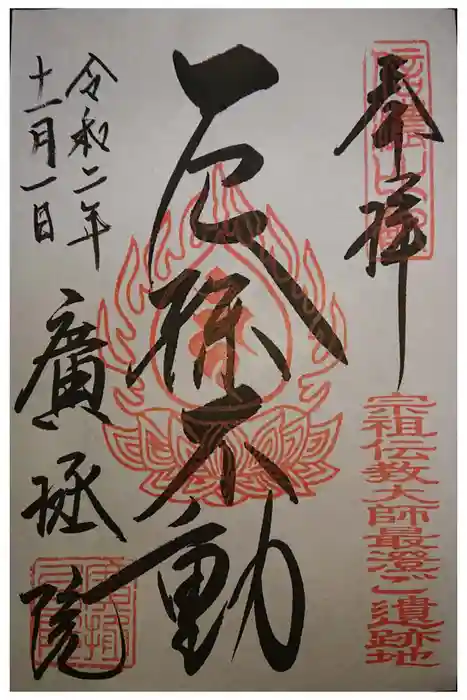 奉拝
宗祖伝教大師最澄ご遺跡地
厄除不動
令和二年
十一月一日
廣拯院